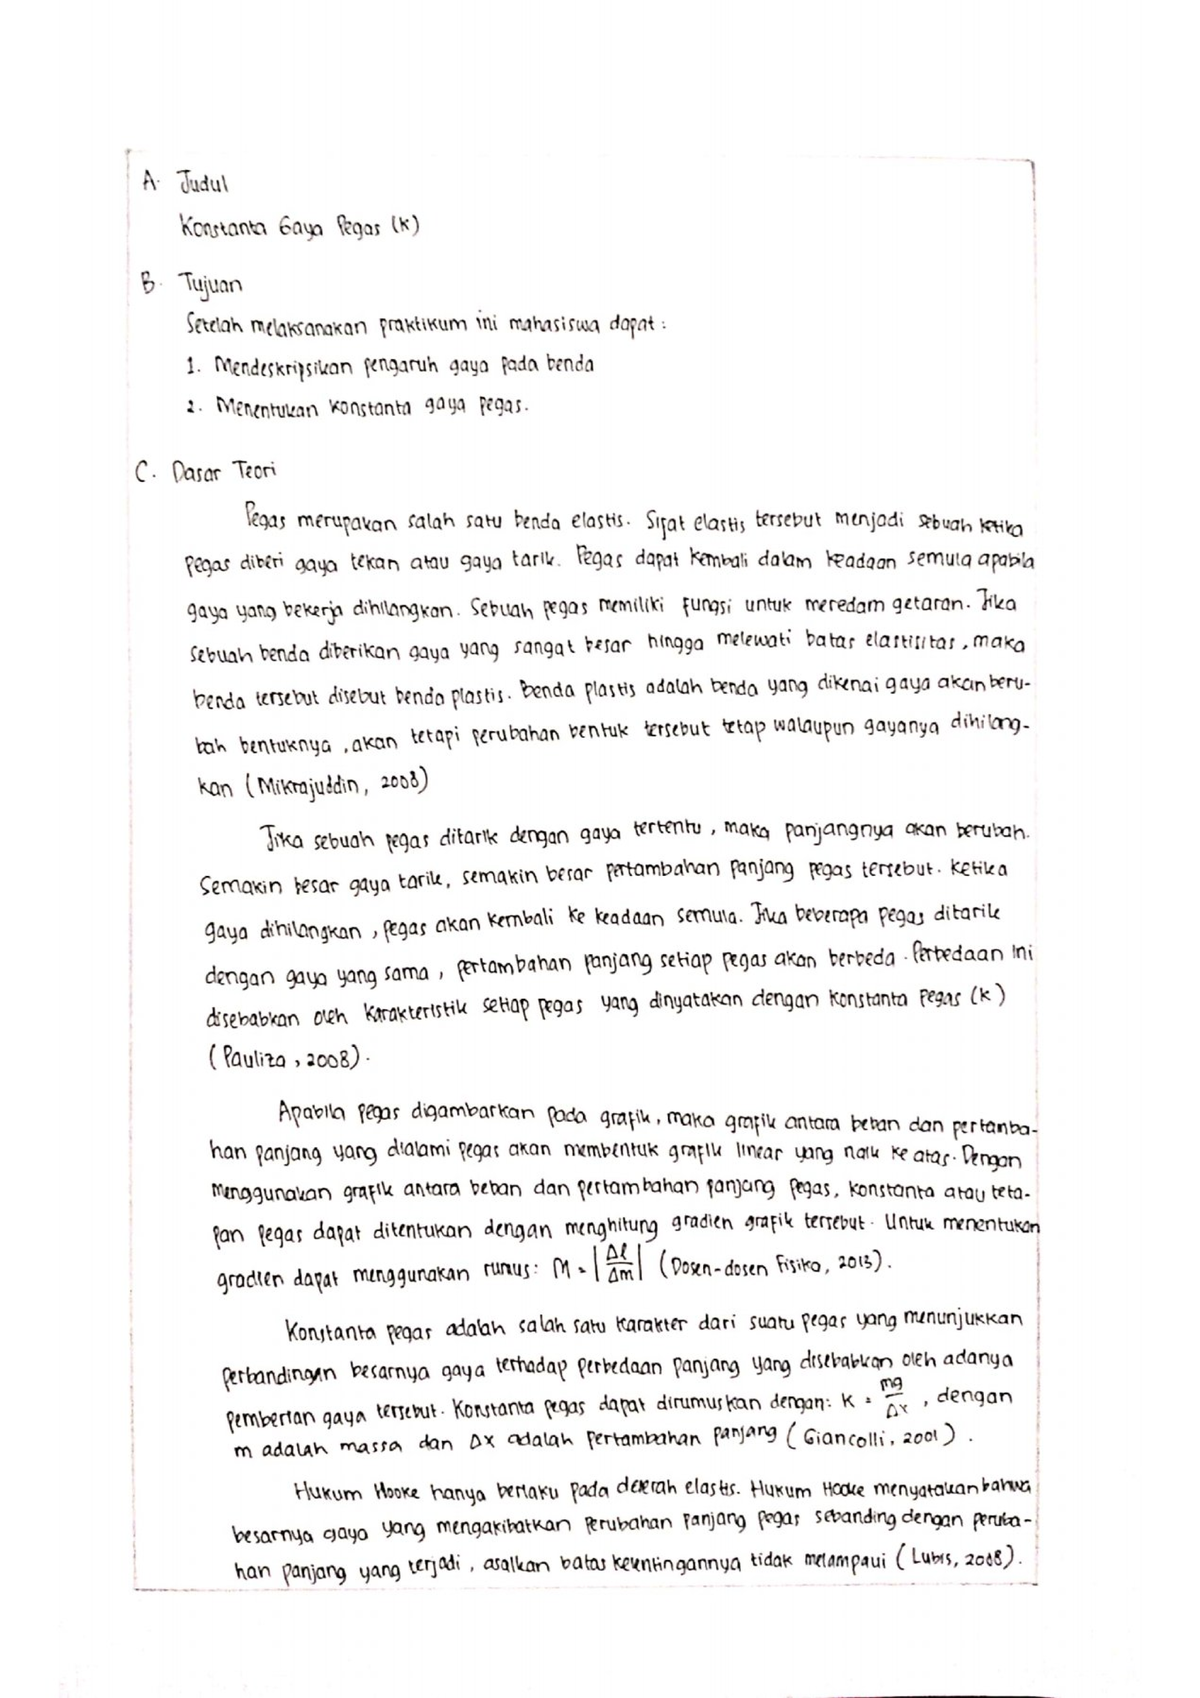 A. Judul
Konstanta Gaya Pegas (k)
B. Tujuan
Setelah melaksanakan praktikum ini mahasiswa dapat :
1. Mendeskripsikan pengaruh gaya pada benda
2. Menentukan konstanta gaya pegas.
C. Dasar Teori
Pegas merupakan salah satu benda elastis. Sifat elastis tersebut menjadi sebuah ketika
pegas diberi gaya tekan atau gaya tarik. Pegas dapat kembali dalam keadaan semula apabila
gaya yang bekerja dihilangkan. Sebuah pegas memiliki fungsi untuk meredam getaran. Jika
sebuah benda diberikan gaya yang sangat besar hingga melewati batas elastisitas, maka
benda tersebut disebut benda plastis. Benda plastis adalah benda yang dikenai gaya akan beru-
bah bentuknya, akan tetapi perubahan bentuk tersebut tetap walaupun gayanya dihilang-
kan (Mikrajuddin, 2008)
Jika sebuah pegas ditarik dengan gaya tertentu, maka panjangnya akan berubah.
Semakin besar gaya tarik, semakin besar pertambahan panjang pegas tersebut. Ketika
gaya dihilangkan, pegas akan kembali ke keadaan semula. Jika beberapa pegas ditarik
dengan gaya yang sama, pertambahan panjang setiap pegas akan berbeda. Perbedaan ini
disebabkan oleh karakteristik setiap pegas yang dinyatakan dengan konstanta pegas (k)
(Pauliza, 2008).
Apabila pegas digambarkan pada grafik, maka grafik antara beban dan pertamba-
han panjang yang dialami pegas akan membentuk grafik linear yang naik ke atas. Dengan
menggunakan grafik antara beban dan pertambahan panjang pegas, konstanta atau teta-
pan pegas dapat ditentukan dengan menghitung gradien grafik tersebut. Untuk menentukan
gradien dapat menggunakan rumus: M = |Δl/Δm| (Dosen-dosen Fisika, 2013).
Konstanta pegas adalah salah satu karakter dari suatu pegas yang menunjukkan
perbandingan besarnya gaya terhadap perbedaan panjang yang disebabkan oleh adanya
pemberian gaya tersebut. Konstanta pegas dapat dirumuskan dengan: K = mg/Δx, dengan
m adalah massa dan Δx adalah pertambahan panjang (Giancolli, 2001).
Hukum Hooke hanya berlaku pada daerah elastis. Hukum Hooke menyatakan bahwa
besarnya gaya yang mengakibatkan perubahan panjang pegas sebanding dengan peruba-
han panjang yang terjadi, asalkan batas kelentingannya tidak melampaui (Lubis, 2008).